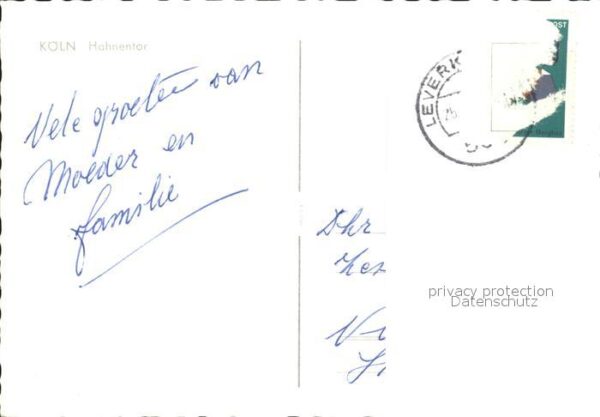 KÖLN Hahnentor
Vele groeten van
Moeder en
familie
LEVERK
POST
Dhr
privacy protection
Datenschutz